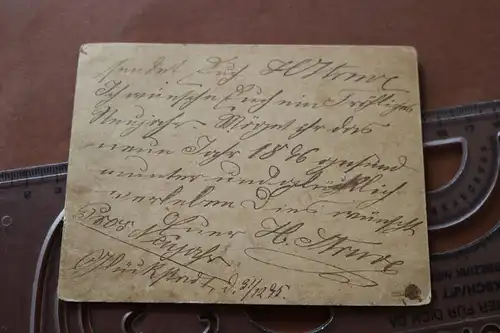 sendet Euch H Struve
Ich wünsche Euch ein Fröhliches
Neujahr. Möget ihr das
neue Jahr 1896 gesund
munter und glücklich
verleben Dies wünscht
Euer H. Struve
Pros Neujahr
Glückstadt, d. 31/12 95.